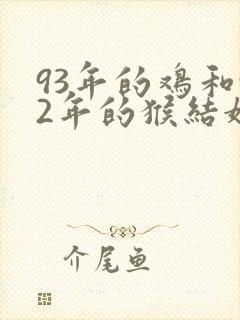 93年的鸡和
2年的猴結
介尾鱼